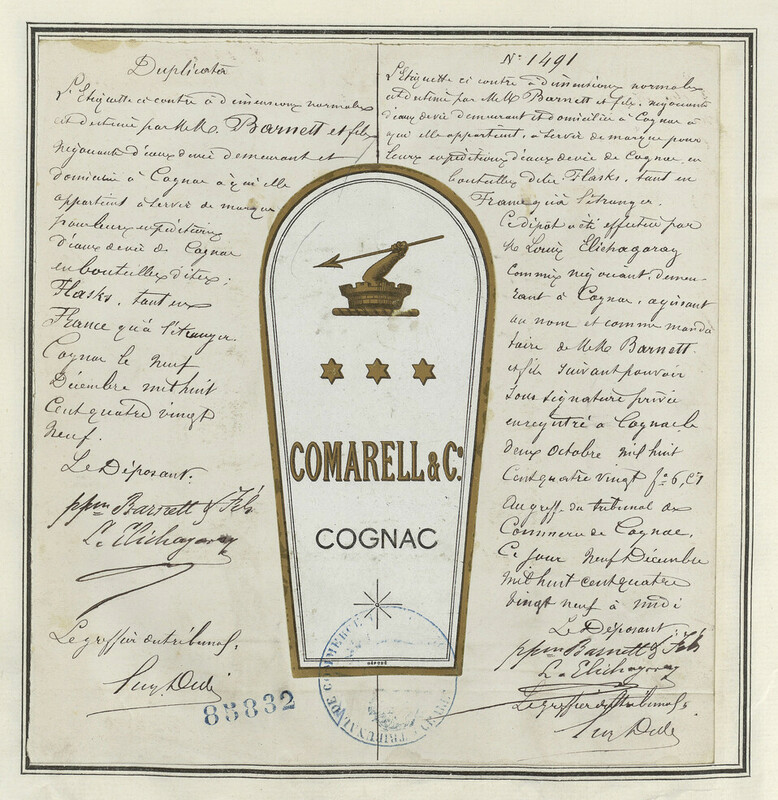 Duplicata
L'Etiquette ci contre à dimensions normales
est destiné par M. M. Barnett et fils
négociants d'eaux devie demeurant et
domicilié à Cognac à qui elle
appartient à servir de marque
pour leurs expéditions
d'eaux devie de Cognac
en bouteilles dites:
Flasks, tant en
France qu'à l'étranger.
Cognac le neuf
Décembre mil huit
Cent quatre vingt
neuf.
Le Déposant.
ppon Barnett & Fils
L. Elichagaray
Le greffier du tribunal,
No 1491
L'Etiquette ci contre à dimensions normales
est destiné par M. M. Barnett et fils, négociants
d'eaux devie demeurant et domicilié à Cognac à
qui elle appartient, à servir de marque pour
leurs expéditions d'eaux devie de Cognac, en
bouteilles dites Flasks, tant en
France qu'à l'étranger.
Ce dépôt a été effectué par
M. Louis Elichagaray
Commis négociant, demeu-
rant à Cognac, agissant
au nom et comme manda
taire de M. M. Barnett
et fils suivant pouvoir
sous signature privée
enregistré à Cognac le
deux octobre mil huit
Cent quatre vingt fo 6, Cs
Au greffe du tribunal de
Commerce de Cognac,
Ce jour neuf Décembre
mil huit cent quatre
vingt neuf à midi
Le Déposant
ppon Barnett & Fils
L. Elichagaray
Le greffier du tribunal,
COMARELL & Co.
COGNAC
DÉPOSÉ
TRIBUNAL DE COMMERCE
85832